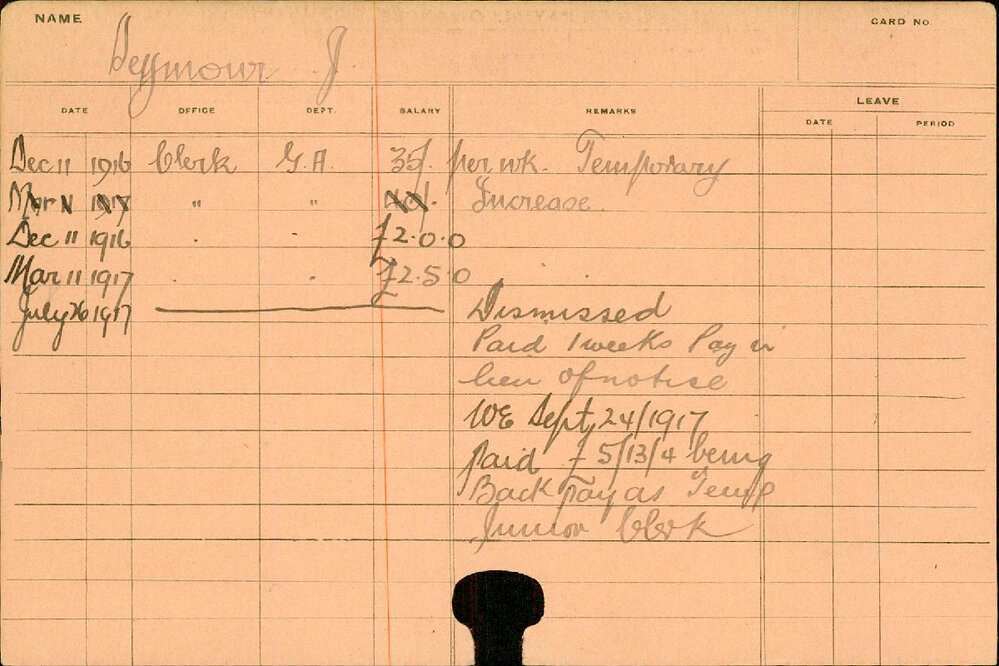 NAME CARD No.
Seymour J.
DATE OFFICE DEPT. SALARY REMARKS LEAVE
DATE PERIOD
Dec 11 1916 Clerk G.A. 35/. per wk. Temporary
Mar 11 1917 " " 40/. Increase
Dec 11 1916 . . £2.0.0
Mar 11 1917 . . £2.5.0
July 26 1917 Dismissed
Paid 1 weeks Pay in
lieu of notice
WE Sept 24/1917
paid £5/13/4 being
Back Pay as Temp
Junior Clerk